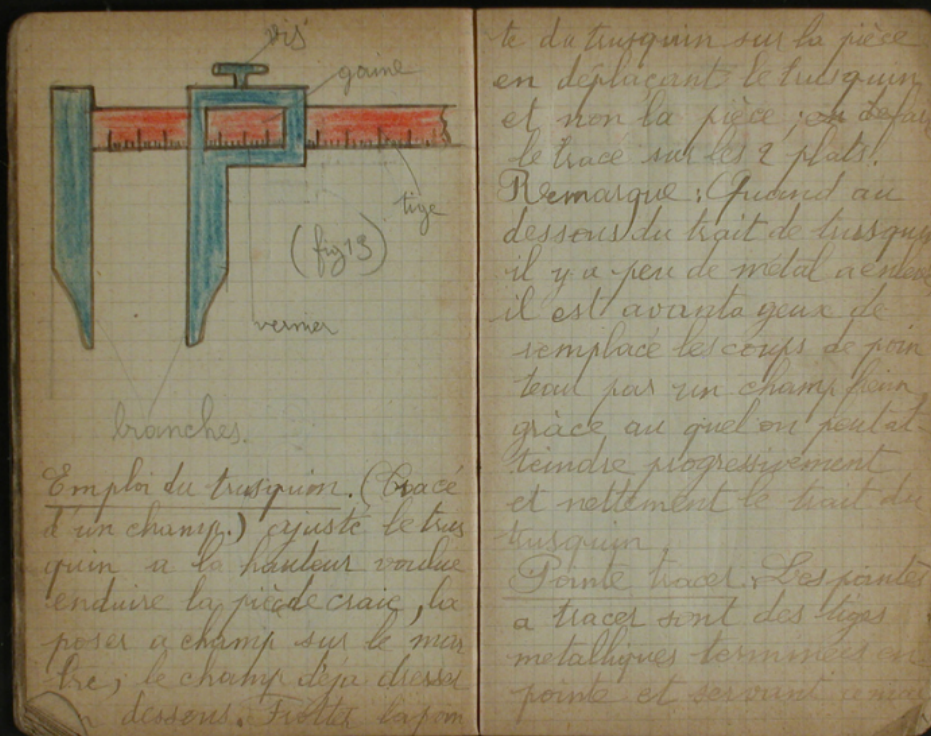 vis
gaine
tige
(fig 13)
vernier
branches.
Emploi du trusquin. (Tracé
d'un champ.) ajusté le trus
quin a la hauteur voulue
enduire la pièce de craie, la
poser a champ sur le mar
bre; le champ déja dresser
dessous. Frotter la poin
te du trusquin sur la pièce
en déplaçant le trusquin
et non la pièce;
le tracé sur les 2 plats.
Remarque: Quand au
dessous du trait de trusquin
il y a peu de métal a enlever
il est avanta geux de
remplacé les coups de poin
teau par un champ frein
grâce au quel on peut at-
teindre progressivement
et nettement le trait du
trusquin.
Pointe tracer. Les pointes
a tracer sont des tiges
metalliques terminées en
pointe et servant